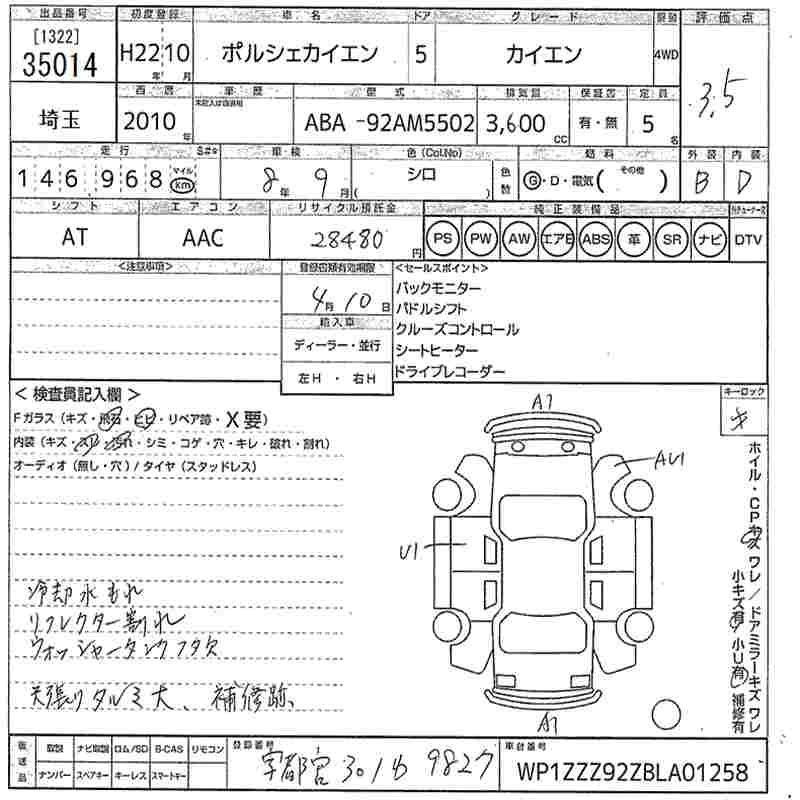 出品番号 初度登録 車名 ドア グレード 駆動 評価点
[1322]
35014 H22 10 ポルシェカイエン 5 カイエン 4WD 3.5
年 月
西暦 車歴 型式 排気量 保証書 定員
未記入は自家用
埼玉 2010年 ABA -92AM5502 3,600cc 有・無 5名
走行 車検 色(Col.No) 燃料 外装 内装
146,968 マイル km 8年 9月 シロ ( ) 色替 G・D・電気( その他 ) B D
シフト エアコン リサイクル預託金 純正装備品
AT AAC 28480円 PS PW AW エアB ABS 革 SR ナビ DTV
<注意事項> 登録書類有効期限 <セールスポイント>
4月10日 バックモニター
輸入車 パドルシフト
ディーラー・並行 クルーズコントロール
左H ・ 右H シートヒーター
ドライブレコーダー
<検査員記入欄> キーロック
Fガラス(キズ・飛石・ヒビ・リペア跡・X要)
内装(キズ・スレ・汚れ・シミ・コゲ・穴・キレ・破れ・割れ)
オーディオ(無し・穴)/タイヤ(スタッドレス)
A1
AU1
U1
A1
ホイル・CPキズ ワレ/ドアミラーキズ ワレ
小キズ有 小U有 補修有
冷却水もれ
リフレクター割れ
ウォッシャータンクフタ欠
天張りタルミ大、補修跡、
販送品 取説 ナビ取説 ロム/SD B-CAS リモコン 登録番号 車台番号
ナンバー スペアキー キーレス スマートキー 宇都宮 301 9827 WP1ZZZ92ZBLA01258